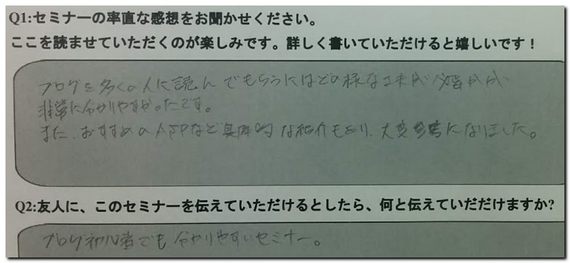 Q1:セミナーの率直な感想をお聞かせください。
ここを読ませていただくのが楽しみです。詳しく書いていただけると嬉しいです！
ブログを多くの人に読んでもらうにはどの様な工夫が必要か
非常に分かりやすかったです。
また、おすすめの人やなど具体的な紹介もあり、大変参考になりました。
Q2:友人に、このセミナーを伝えていただけるとしたら、何と伝えていだだけますか?
ブログ初心者でも分かりやすいセミナー。